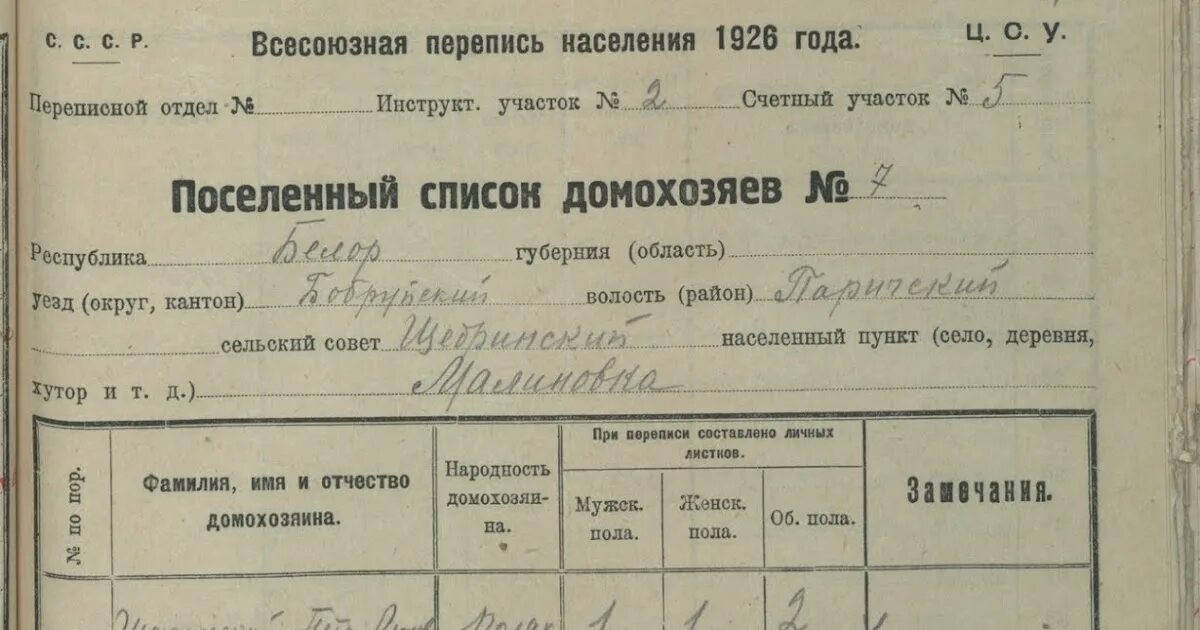 С. С. С. Р. Всесоюзная перепись населения 1926 года. Ц. С. У.
Переписной отдел № Инструкт. участок № 2 Счетный участок № 5
Поселенный список домохозяев № 7
Республика Белор губерния (область)
уезд (округ, кантон) Бобруйский волость (район) Паричский
сельский совет Щедринский населенный пункт (село, деревня,
хутор и т. д.) Малиновка
№ по пор.
Фамилия, имя и отчество
домохозяина.
Народность
домохозяи-
на.
При переписи составлено личных
листков.
Мужск.
пола.
Женск.
пола.
Об. пола.
Замечания.
1 1 2